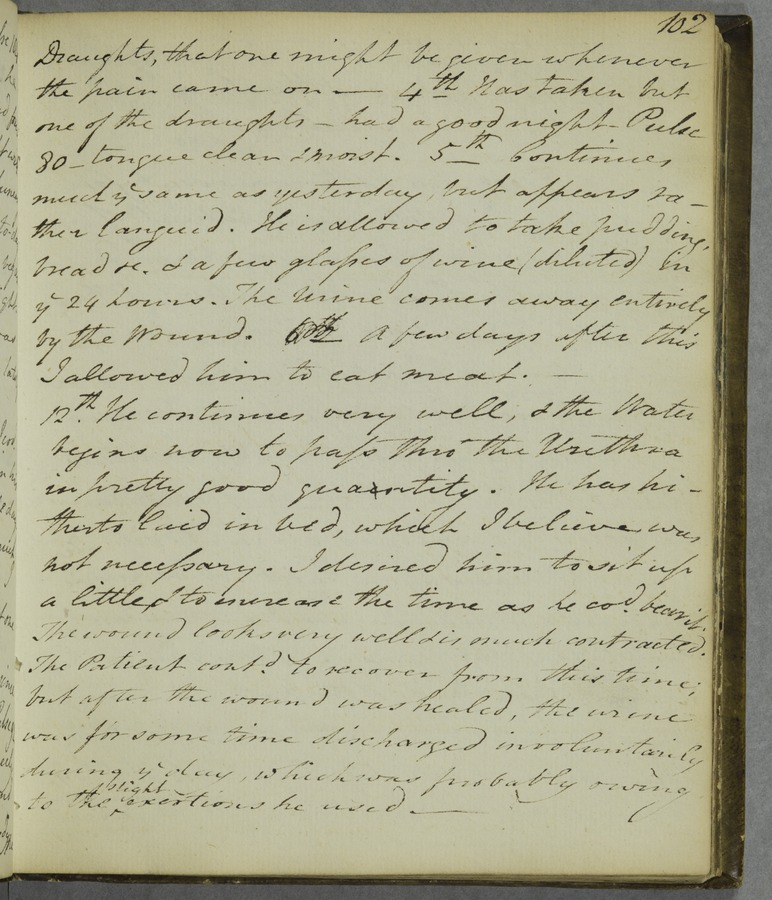 102
Draughts, that one might be given whenever
the pain came on — 4th Has taken but
one of the draughts – had a good night – Pulse
80 – tongue clean & moist. 5th Continues
much ye same as yesterday, but appears ra-
ther languid. He is allowed to take pudding,
bread &c. & a few glasses of wine (diluted) in
ye 24 hours. The Urine comes away entirely
by the Wound. A few days after this
I allowed him to eat meat. —
12th. He continues very well, & the Water
begins now to pass thro' the Urethra
in pretty good quantity. He has hi-
therto laid in bed, which I believe was
not necessary. I desired him to sit up
a little & to increase the time as he cod. bear it.
The wound looks very well & is much contracted.
The Patient contd. to recover from this time;
but after the wound was healed, the urine
was for some time discharged involuntarily
during ye day, which was probably owing
to the slight exertions he used —